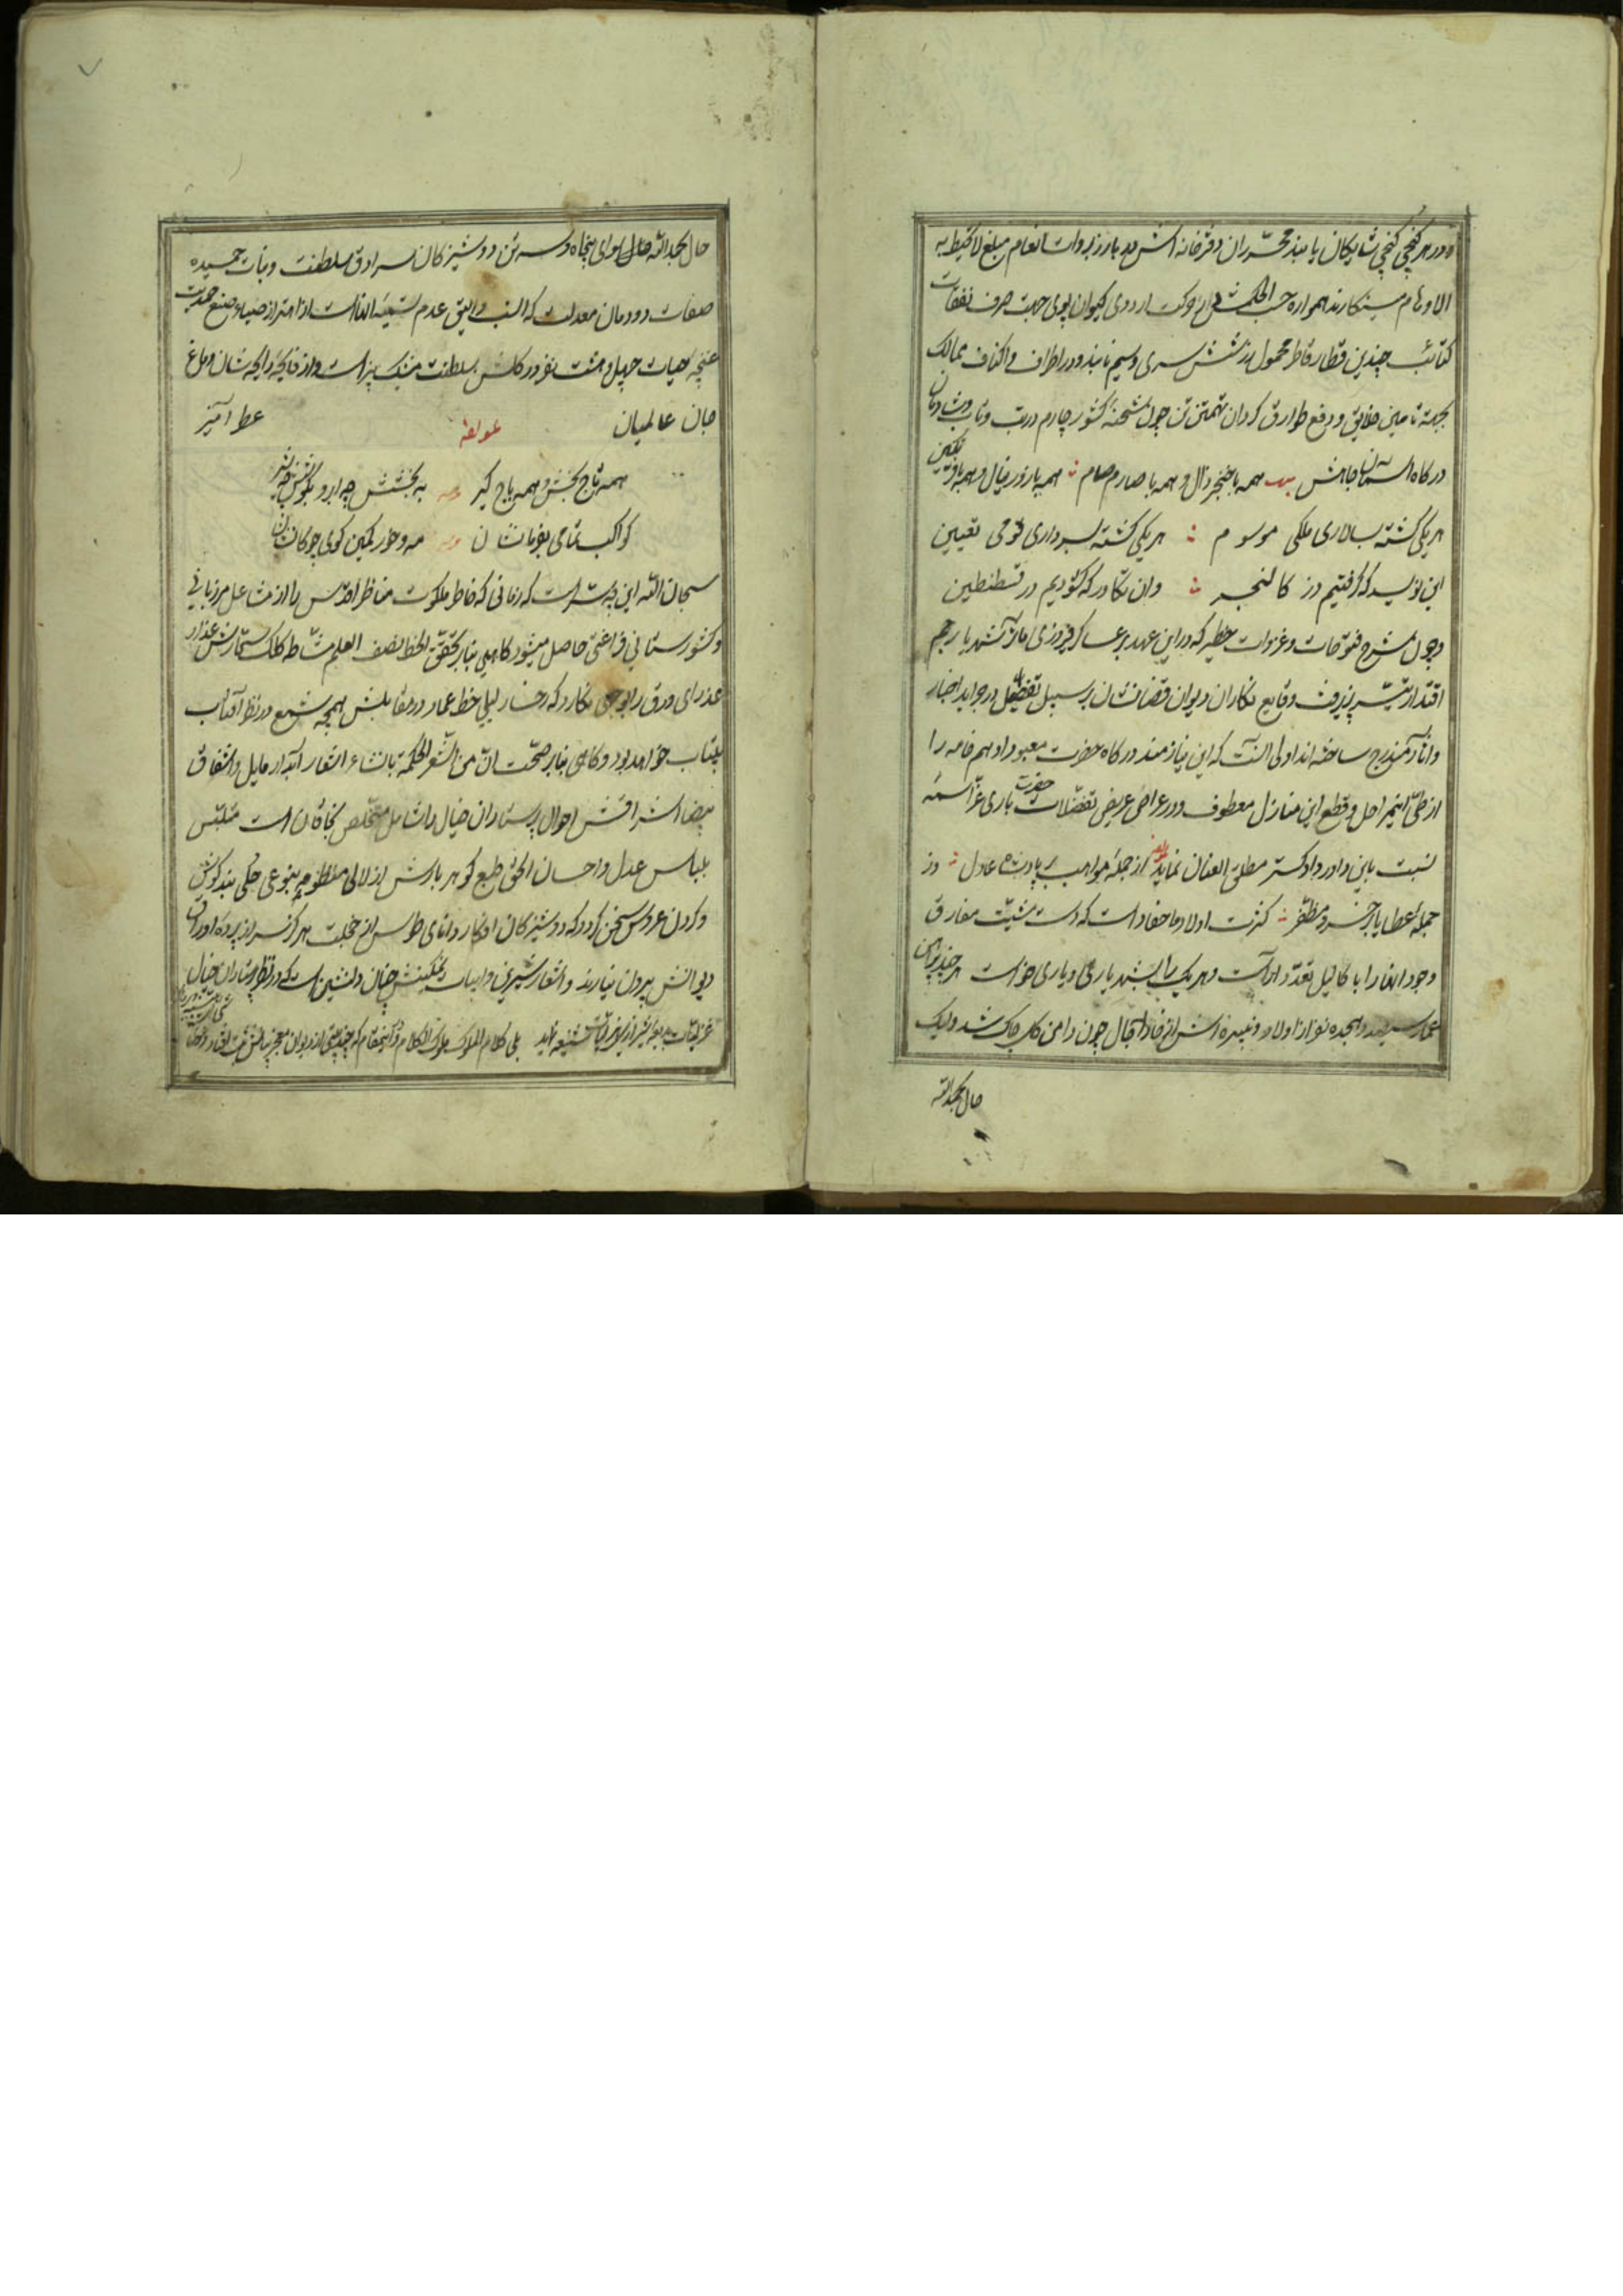 و در هر کنجی کنجی شایکان یابند محرران دفترخانه اش هر بار زبروات انعام مبلغ لا تحیط به
الاوهام مینکارند همواره حسب الحکمش در حرکت اردوی کیوان پوی جهت صرف نفقات
کتائب چندین قطار قاطر محمول زر شش سری و سیم نابند و در اطراف و اکناف ممالک
بجهة تأمین خلایق و دفع طوارق کردان تهمتن تن چون شحنه کشور چارم در تب و تاب
درکاه آسمان جاهش بیت همه با خنجر زال و همه با صارم سام همه با زور نیال و همه با فر تکین
هر یکی کشته بسالاری ملکی موسوم هر یکی کشته بسرداری قومی تعیین
این نویسد که کرفتیم دز کالنجر وان نکارد که کشودیم در قسطنطین
و چون شرح فتوحات و غزوات خطیر که در این عهد بر عساکر فیروزی مآثر شهریار جم
اقتدار تیسیر پذیرفت وقایع نکاران دیوان قضانشان بر سبیل تفصیل در جراید اخبار
و آثار مندرج ساخته اند اولی آنست که این نیازمند درکاه حضرت معبود ادهم خامه را
از طی این مراحل و قطع این منازل معطوف و در عراض عریض تفضلات حضرت باری عز اسمه
نسبت باین داور دادکستر مطلق العنان نماید از جمله مواهب بر پادشاه عادل وز
جمله عطایا بر خسرو مظفر کثرت اولاد و احفاد است که دست مشیت مفارق
وجود آنها را با کالیل تعدد آراست و هر یک را بشهریاری دیاری خواست
شمار سیصد و هجده نفر از اولاد و نبیره اش از خار آجال چون دامن کل چاک شد ولیک
حال بحمدالله
حال بحمدالله سوای پنجاه و سه تن دوشیزکان سرادق سلطنت و بنات حمیده
صفات دودمان معدلت که انسب و الیق عدم تسمیه آنهاست از اهتزاز صبای صنع احدیت
غنچه حیات چهل و هشت نفر در کلشن سلطنت مشک بیز است و از فایحه رایحه شان دماغ
جان عالمیان عطر آمیز
لمولفه
همه تاج بخش و همه باج کیر به بخشش چه ابرو بکوشش چه شیر
کواکب تمامی بفرمانشان مه و خور کمین کوی چوکانشان
سبحان الله این چه سرّ است که زمانی که خاطر ملکوت مناظر اقدس را از مشاعل مرزبانی
و کشورستانی فراغتی حاصل میشود کاهی بنابر تحقق الخط نصف العلم مشاطه کلک
عذرای ورق را بوجهی نکارد که رخسار لیلی خط عماد در مقابلش همچه شمع در نظر آفتاب
بیتاب خواهد بود و کاهی بنابر صحت ان من الشعر لحکمة بانشاء اشعار آبدار مایل و اشفاق
بیضا اشراقش احوال پرستاران خیال را شامل متخلص بخاقان است متلبس
بلباس عدل و احسان الحق طبع کوهر بارش از لآلی منظومه بنوعی حلی بند کوش
و کردن عروس سخن کردد که دوشیزکان افکار دانای طوس از خجلت هرکز سر از پرده اوراق
دیوانش بیرون نیارند و اشعار شیرین و ابیات نمکینش چنان دلنشین است که در نظر پرستاران خیال
بلی کلام الملوک ملوک الکلام و در اینمقام که چند بیتی از دیوان